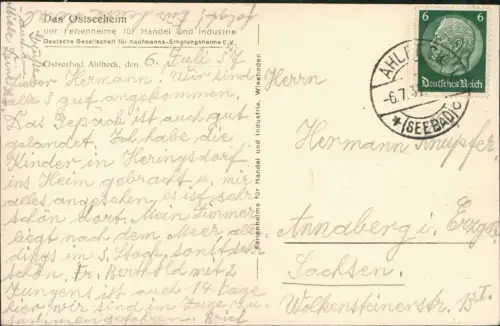 Das Ostseeheim
der Ferienheime für Handel und Industrie
Deutsche Gesellschaft für Kaufmanns-Erholungsheime E.V.
Ostseebad Ahlbeck, den 6. Juli 37
Lieber Hermann! Wir sind
alle 3 gut angekommen.
Das Gepäck ist auch gut
gelandet. Ich habe die
Kinder in Heringsdorf
ins Heim gebracht u. mir
alles angesehen, es ist sehr
schön dort. Mein Zimmer
liegt nach dem Meer aller
dings im 3. Stock, sonst sehr
schön. Fr. Berthold mit 2
Jungens ist auch 14 Tage
hier wir sind im Zuge zu
sammengefahren. Brief
folgt!
Ferienheime für Handel und Industrie, Wiesbaden
6 6
Deutsches Reich
AHLBECK
-6.7.37
(SEEBAD)
c
Herrn
Hermann Knüpfer
Annaberg i. Erzgeb.
Sachsen.
Wolkensteinerstr. 13 I.